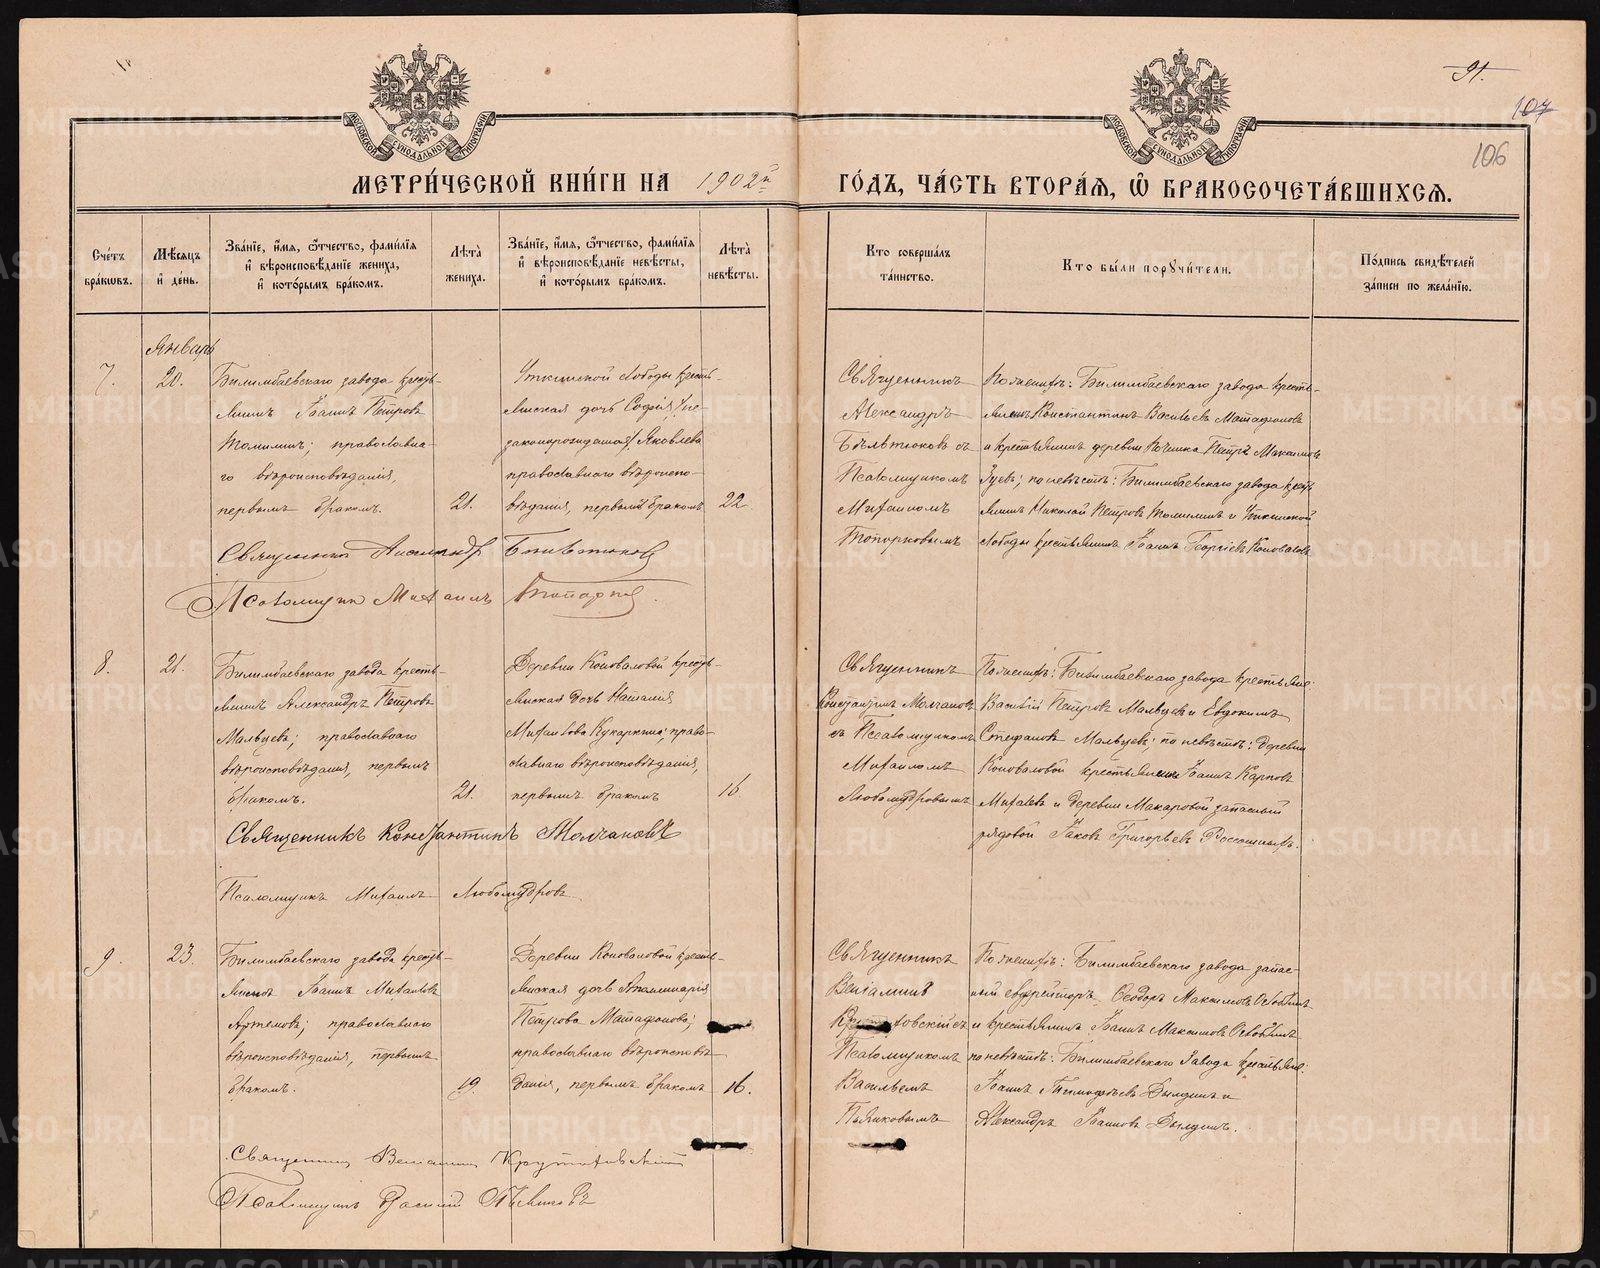 91.
107
106
МОСКОВСКОЙ СѴНОДАЛЬНОЙ ТИПОГРАФІИ
МОСКОВСКОЙ СѴНОДАЛЬНОЙ ТИПОГРАФІИ
МЕТРИ́ЧЕСКОЙ КНИ́ГИ НА 1902й ГО́ДЪ, ЧА́СТЬ ВТОРА́Я, Ѽ БРАКОСОЧЕТА́ВШИХСЯ.
Сче́тъ бра́кѡвъ.
Мѣ́сяцъ и҆ де́нь.
Зва́нїе, и҆́мя, ѻ҆́тчество, фами́лїя
и҆ вѣроисповѣ́данїе жениха̀,
и҆ кото́рымъ бра́комъ.
Лѣта̀ жениха̀.
Зва́нїе, и҆́мя, ѻ҆́тчество, фами́лїя
и҆ вѣроисповѣ́данїе невѣ́сты,
и҆ кото́рымъ бра́комъ.
Лѣта̀ невѣ́сты.
Кто соверша́лъ
та́инство.
Кто бы́ли порꙋчи́тели.
По́дпись свидѣ́телей
за́писи по жела́нїю.
Январь
7.
20.
Билимбаевскаго завода кресть-
янинъ Іоаннъ Петровъ
Томилинъ; православна-
го вѣроисповѣданія,
первымъ бракомъ.
21.
Уткинской слободы кресть-
янская дочь Софія /не-
законорожденная/ Яковлева
православнаго вѣроиспо-
вѣданія, первымъ бракомъ
22
Священникъ
Александръ
Бѣльтюковъ съ
Псаломщикомъ
Михаиломъ
Топорковымъ
По женихѣ: Билимбаевскаго завода кресть-
янинъ Константинъ Васильевъ Матафоновъ
и крестьянинъ деревни Починка Петръ Максимовъ
Зуевъ; по невѣстѣ: Билимбаевскаго завода кресть
янинъ Николай Петровъ Томилинъ и Уткинской
слободы крестьянинъ Іоаннъ Георгіевъ Коноваловъ
Священникъ Александръ Бѣльтюковъ
Псаломщикъ Михаилъ Топорковъ.
8.
21.
Билимбаевскаго завода кресть-
янинъ Александръ Петровъ
Мальцевъ; православнаго
вѣроисповѣданія, первымъ
бракомъ.
21.
Деревни Коноваловой кресть-
янская дочь Наталія
Михайлова Кукаркина; право-
славнаго вѣроисповѣданія,
первымъ бракомъ
16
Священникъ
Константинъ Молчановъ
съ Псаломщикомъ
Михаиломъ
Любомудровымъ
По женихѣ: Билимбаевскаго завода крестьяне:
Василій Петровъ Мальцевъ и Евдокимъ
Стефановъ Мальцевъ; по невѣстѣ: деревни
Коноваловой крестьянинъ Іоаннъ Карповъ
Михалевъ и деревни Макаровой запасный
рядовой Іаковъ Григорьевъ
Священникъ Константинъ Молчановъ
Псаломщикъ Михаилъ Любомудровъ
9.
23.
Билимбаевскаго завода кресть-
янинъ Іоаннъ Михайловъ
Артемовъ; православнаго
вѣроисповѣданія, первымъ
бракомъ.
19.
Деревни Коноваловой кресть-
янская дочь Аполлинарія
Петрова Матафонова;
православнаго вѣроисповѣ-
данія, первымъ бракомъ
16.
Священникъ
Веніаминъ
съ
Псаломщикомъ
Васильемъ
Пьянковымъ
По женихѣ: Билимбаевскаго завода запас-
ный ефрейторъ Ѳеодоръ Максимовъ
и крестьянинъ Іоаннъ Максимовъ
по невѣстѣ: Билимбаевскаго завода крестьяне:
Іоаннъ Тимофеевъ Дылдинъ и
Александръ Іоанновъ Дылдинъ.
Священникъ Веніаминъ
Псаломщикъ Василій Пьянковъ
METRIKI.GASO-URAL.RU